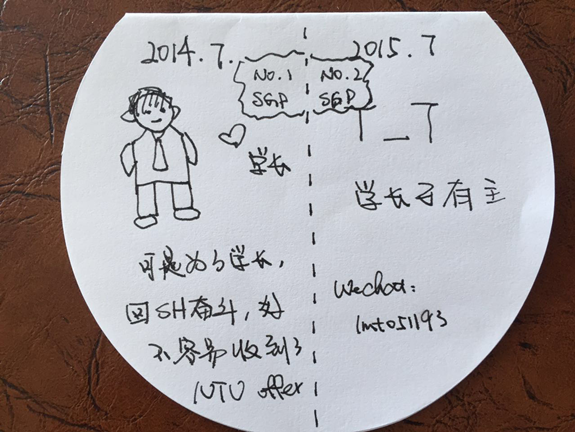 2014.7.
NO.1
SGP
学长
可是为了学长,
回SH奋斗,好
不容易收到了
NTU offer
2015.7
NO.2
SGP
T_T
学长已有主
Wechat: